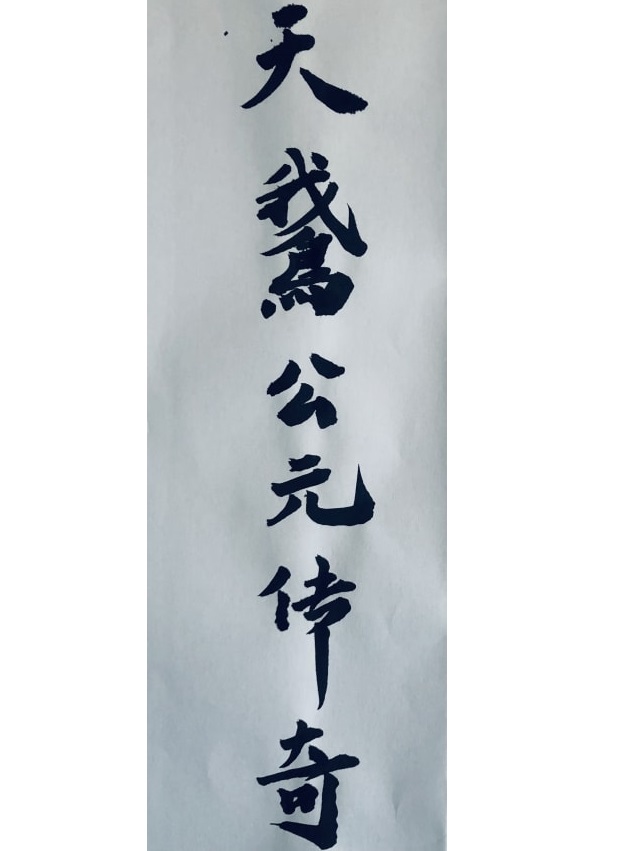 天鵞公元传奇